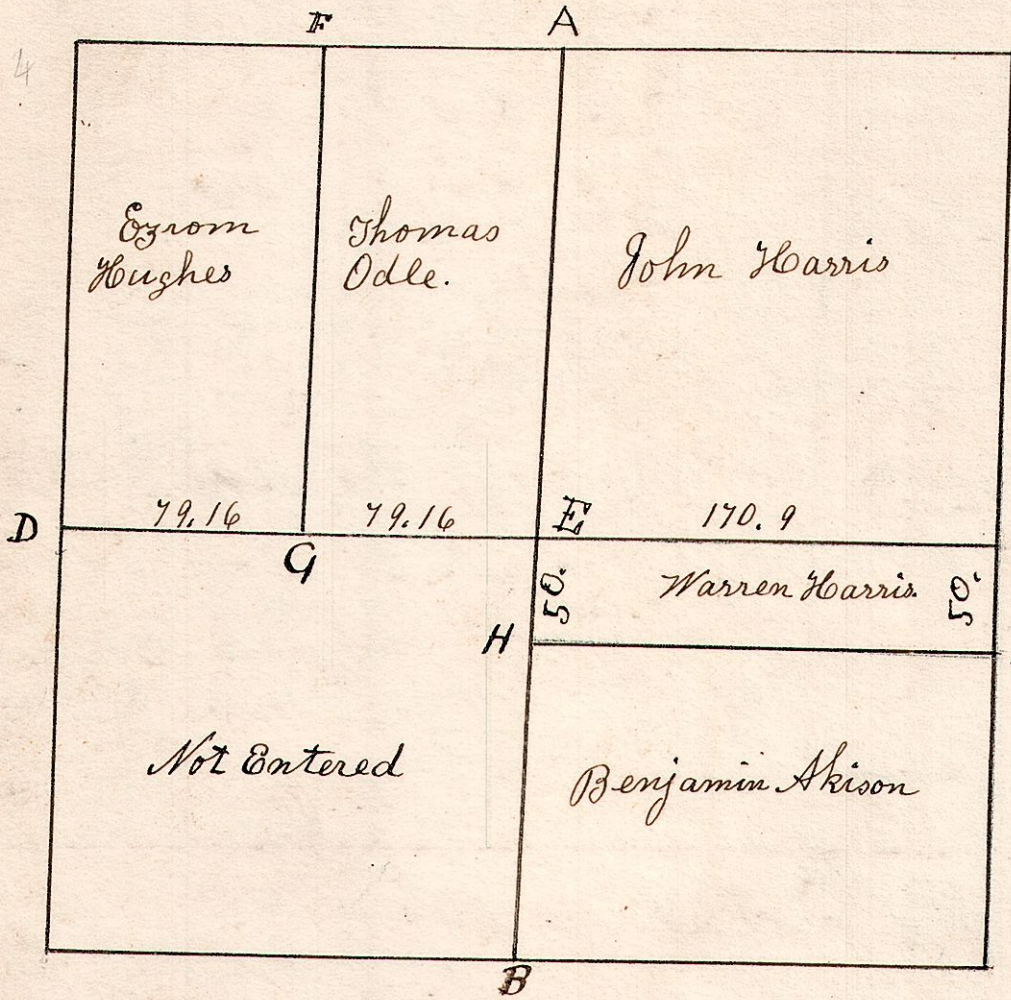 F
A
4
Ezrom
Hughes
Thomas
Odle.
John Harris
79.16
79.16
170.9
D
G
E
50.
Warren Harris.
50.
H
Not Entered
Benjamin Akison
B